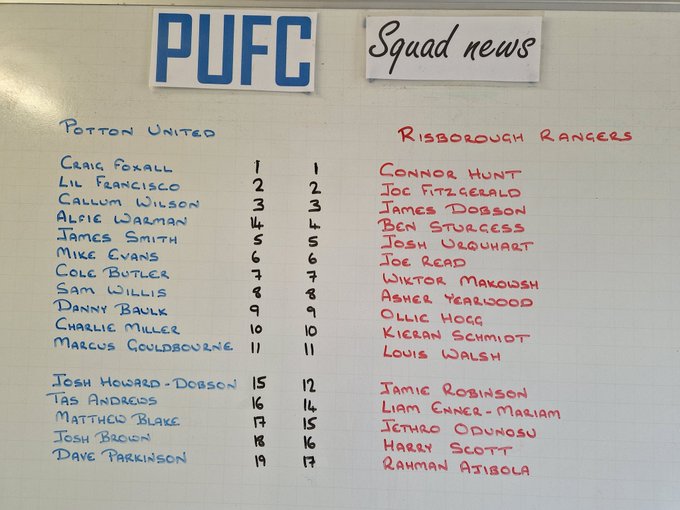 PUFC Squad news
POTTON UNITED RISBOROUGH RANGERS
CRAIG FOXALL 1 1 CONNOR HUNT
LIL FRANCISCO 2 2 JOE FITZGERALD
CALLUM WILSON 3 3 JAMES DOBSON
ALFIE WARMAN 14 4 BEN STURGESS
JAMES SMITH 5 5 JOSH URQUHART
MIKE EVANS 6 6 JOE READ
COLE BUTLER 7 7 WIKTOR MAKOWSH
SAM WILLIS 8 8 ASHER YEARWOOD
DANNY BAULK 9 9 OLLIE HOGG
CHARLIE MILLER 10 10 KIERAN SCHMIDT
MARCUS GOULDBOURNE 11 11 LOUIS WALSH
JOSH HOWARD-DOBSON 15 12 JAMIE ROBINSON
TAS ANDREWS 16 14 LIAM ENNER-MARIAM
MATTHEW BLAKE 17 15 JETHRO ODUNOSU
JOSH BROWN 18 16 HARRY SCOTT
DAVE PARKINSON 19 17 RAHMAN AJIBOLA